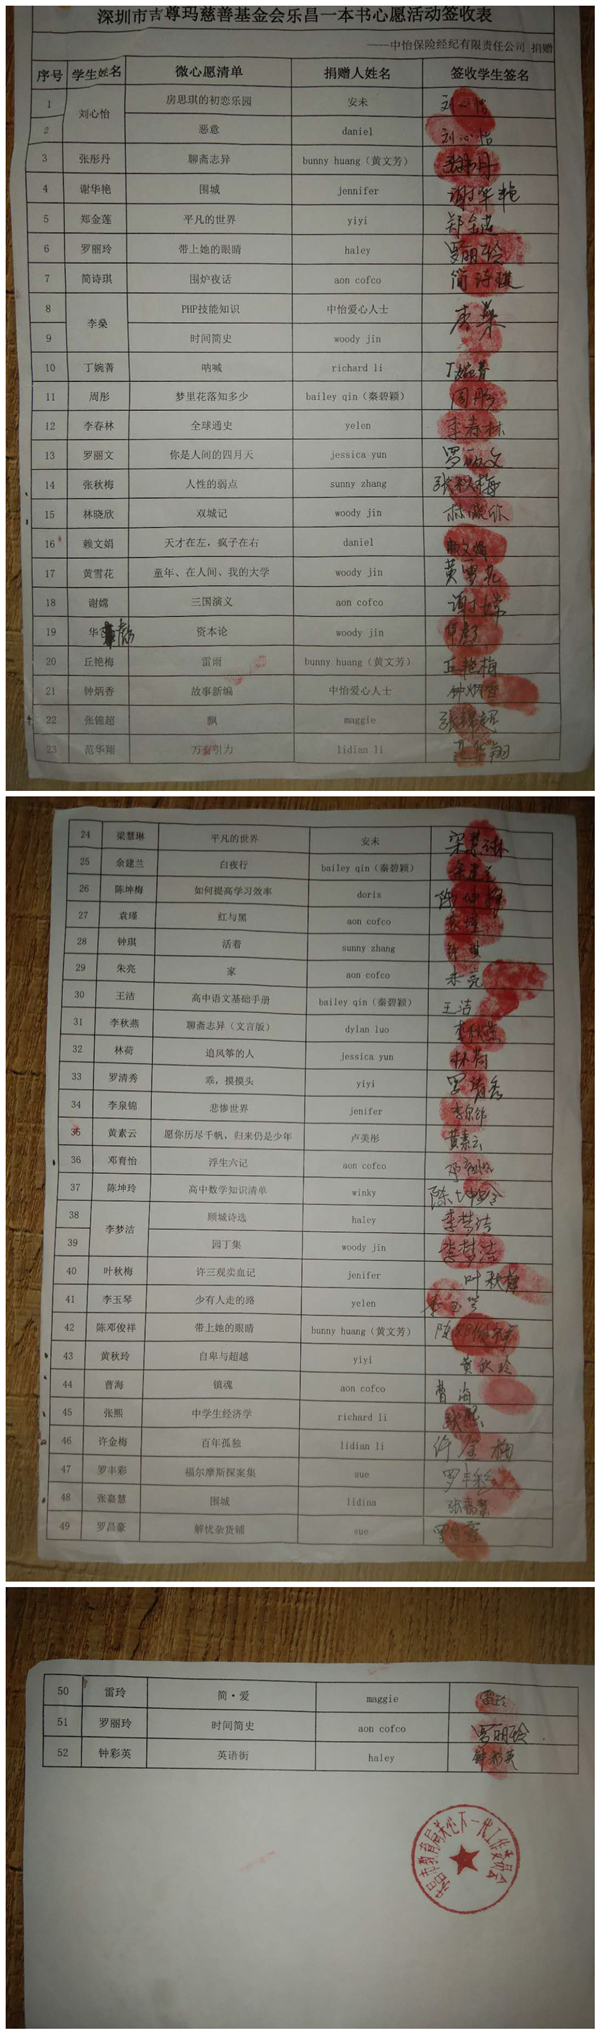 深圳市吉尊玛慈善基金会乐昌一本书心愿活动签收表
——中怡保险经纪有限责任公司 捐赠
序号 学生姓名 微心愿清单 捐赠人姓名 签收学生签名
1 刘心怡 房思琪的初恋乐园 安未 刘心怡
2 恶意 daniel 刘心怡
3 张彤丹 聊斋志异 bunny huang（黄文芳） 张彤丹
4 谢华艳 围城 jennifer 谢华艳
5 郑金莲 平凡的世界 yiyi 郑金莲
6 罗丽玲 带上她的眼睛 haley 罗丽玲
7 简诗琪 围炉夜话 aon cofco 简诗琪
8 李燊 PHP技能知识 中怡爱心人士 李燊
9 时间简史 woody jin
10 丁婉菁 呐喊 richard li 丁婉菁
11 周彤 梦里花落知多少 bailey qin（秦碧颖） 周彤
12 李春林 全球通史 yelen 李春林
13 罗丽文 你是人间的四月天 jessica yun 罗丽文
14 张秋梅 人性的弱点 sunny zhang 张秋梅
15 林晓欣 双城记 woody jin 林晓欣
16 赖文娟 天才在左，疯子在右 daniel 赖文娟
17 黄雪花 童年、在人间、我的大学 woody jin 黄雪花
18 谢嫦 三国演义 aon cofco 谢嫦
19 华 资本论 woody jin
20 丘艳梅 雷雨 bunny huang（黄文芳） 丘艳梅
21 钟炳香 故事新编 中怡爱心人士 钟炳香
22 张锦超 飘 maggie 张锦超
23 范华翔 万有引力 lidian li 范华翔
24 梁慧琳 平凡的世界 安未 梁慧琳
25 余建兰 白夜行 bailey qin（秦碧颖） 余建兰
26 陈坤梅 如何提高学习效率 doris 陈坤梅
27 袁瑾 红与黑 aon cofco 袁瑾
28 钟琪 活着 sunny zhang 钟琪
29 朱亮 家 aon cofco 朱亮
30 王洁 高中语文基础手册 bailey qin（秦碧颖） 王洁
31 李秋燕 聊斋志异（文言版） dylan luo 李秋燕
32 林荷 追风筝的人 jessica yun 林荷
33 罗清秀 乖，摸摸头 yiyi 罗清秀
34 李泉锦 悲惨世界 jenifer 李泉锦
35 黄素云 愿你历尽千帆，归来仍是少年 卢美彤 黄素云
36 邓育怡 浮生六记 aon cofco 邓育怡
37 陈坤玲 高中数学知识清单 winky 陈坤玲
38 李梦洁 顾城诗选 haley 李梦洁
39 园丁集 woody jin 李梦洁
40 叶秋梅 许三观卖血记 jenifer 叶秋梅
41 李玉琴 少有人走的路 yelen 李玉琴
42 陈邓俊祥 带上她的眼睛 bunny huang（黄文芳） 陈邓俊祥
43 黄秋玲 自卑与超越 yiyi 黄秋玲
44 曹海 镇魂 aon cofco 曹海
45 张熙 中学生经济学 richard li 张熙
46 许金梅 百年孤独 lidian li 许金梅
47 罗丰彩 福尔摩斯探案集 sue 罗丰彩
48 张嘉慧 围城 lidina 张嘉慧
49 罗昌豪 解忧杂货铺 sue 罗昌豪
50 雷玲 简·爱 maggie 雷玲
51 罗丽玲 时间简史 aon cofco 罗丽玲
52 钟彩英 英语街 haley 钟彩英
乐昌市教育局关心下一代工作委员会